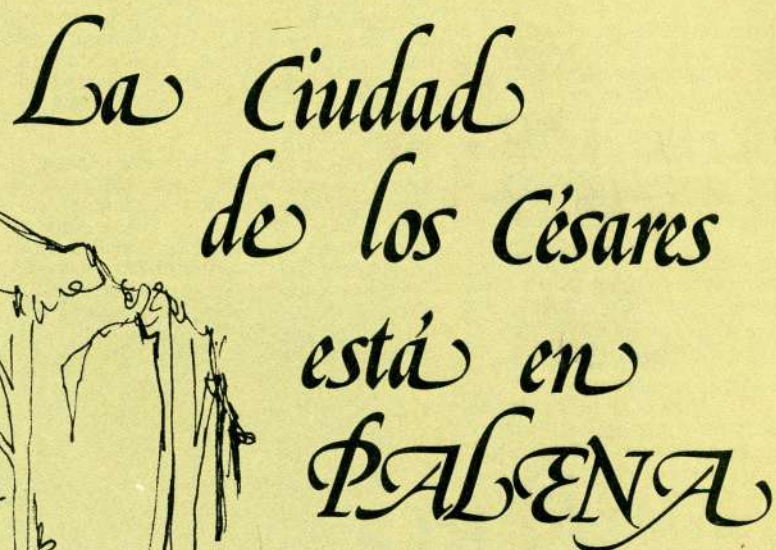 La Ciudad
de los Césares
está en
PALENA